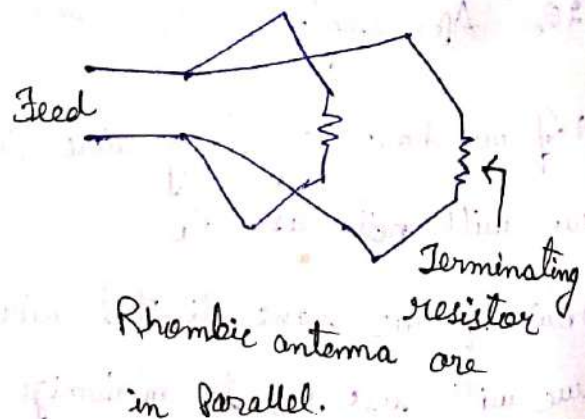 Feed
Terminating
resistor
Rhombic antenna are
in Parallel.